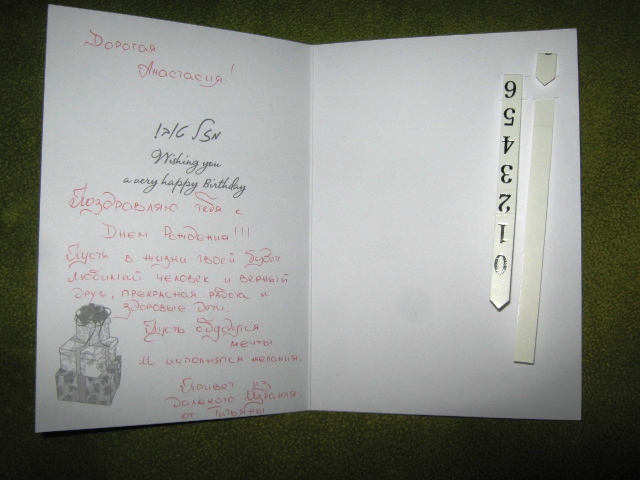 Дорогая
Анастасия!
Wishing you
a very happy Birthday
Поздравляю тебя с
Днем Рождения!!!
Пусть в жизни твоей будет
любимый человек и верный
друг, прекрасная работа и
здоровые дети.
Пусть сбудутся
мечты
И исполнятся желания.
Привет из
далекого Израиля.
от Татьяны
6
5
4
3
2
1
0